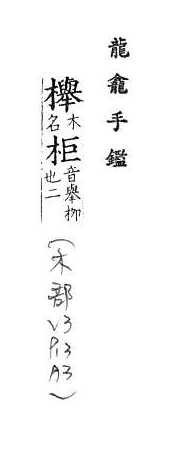 龍龕手鑑
欅木名柜音舉柳也二
(木部
V3
P13
A3)